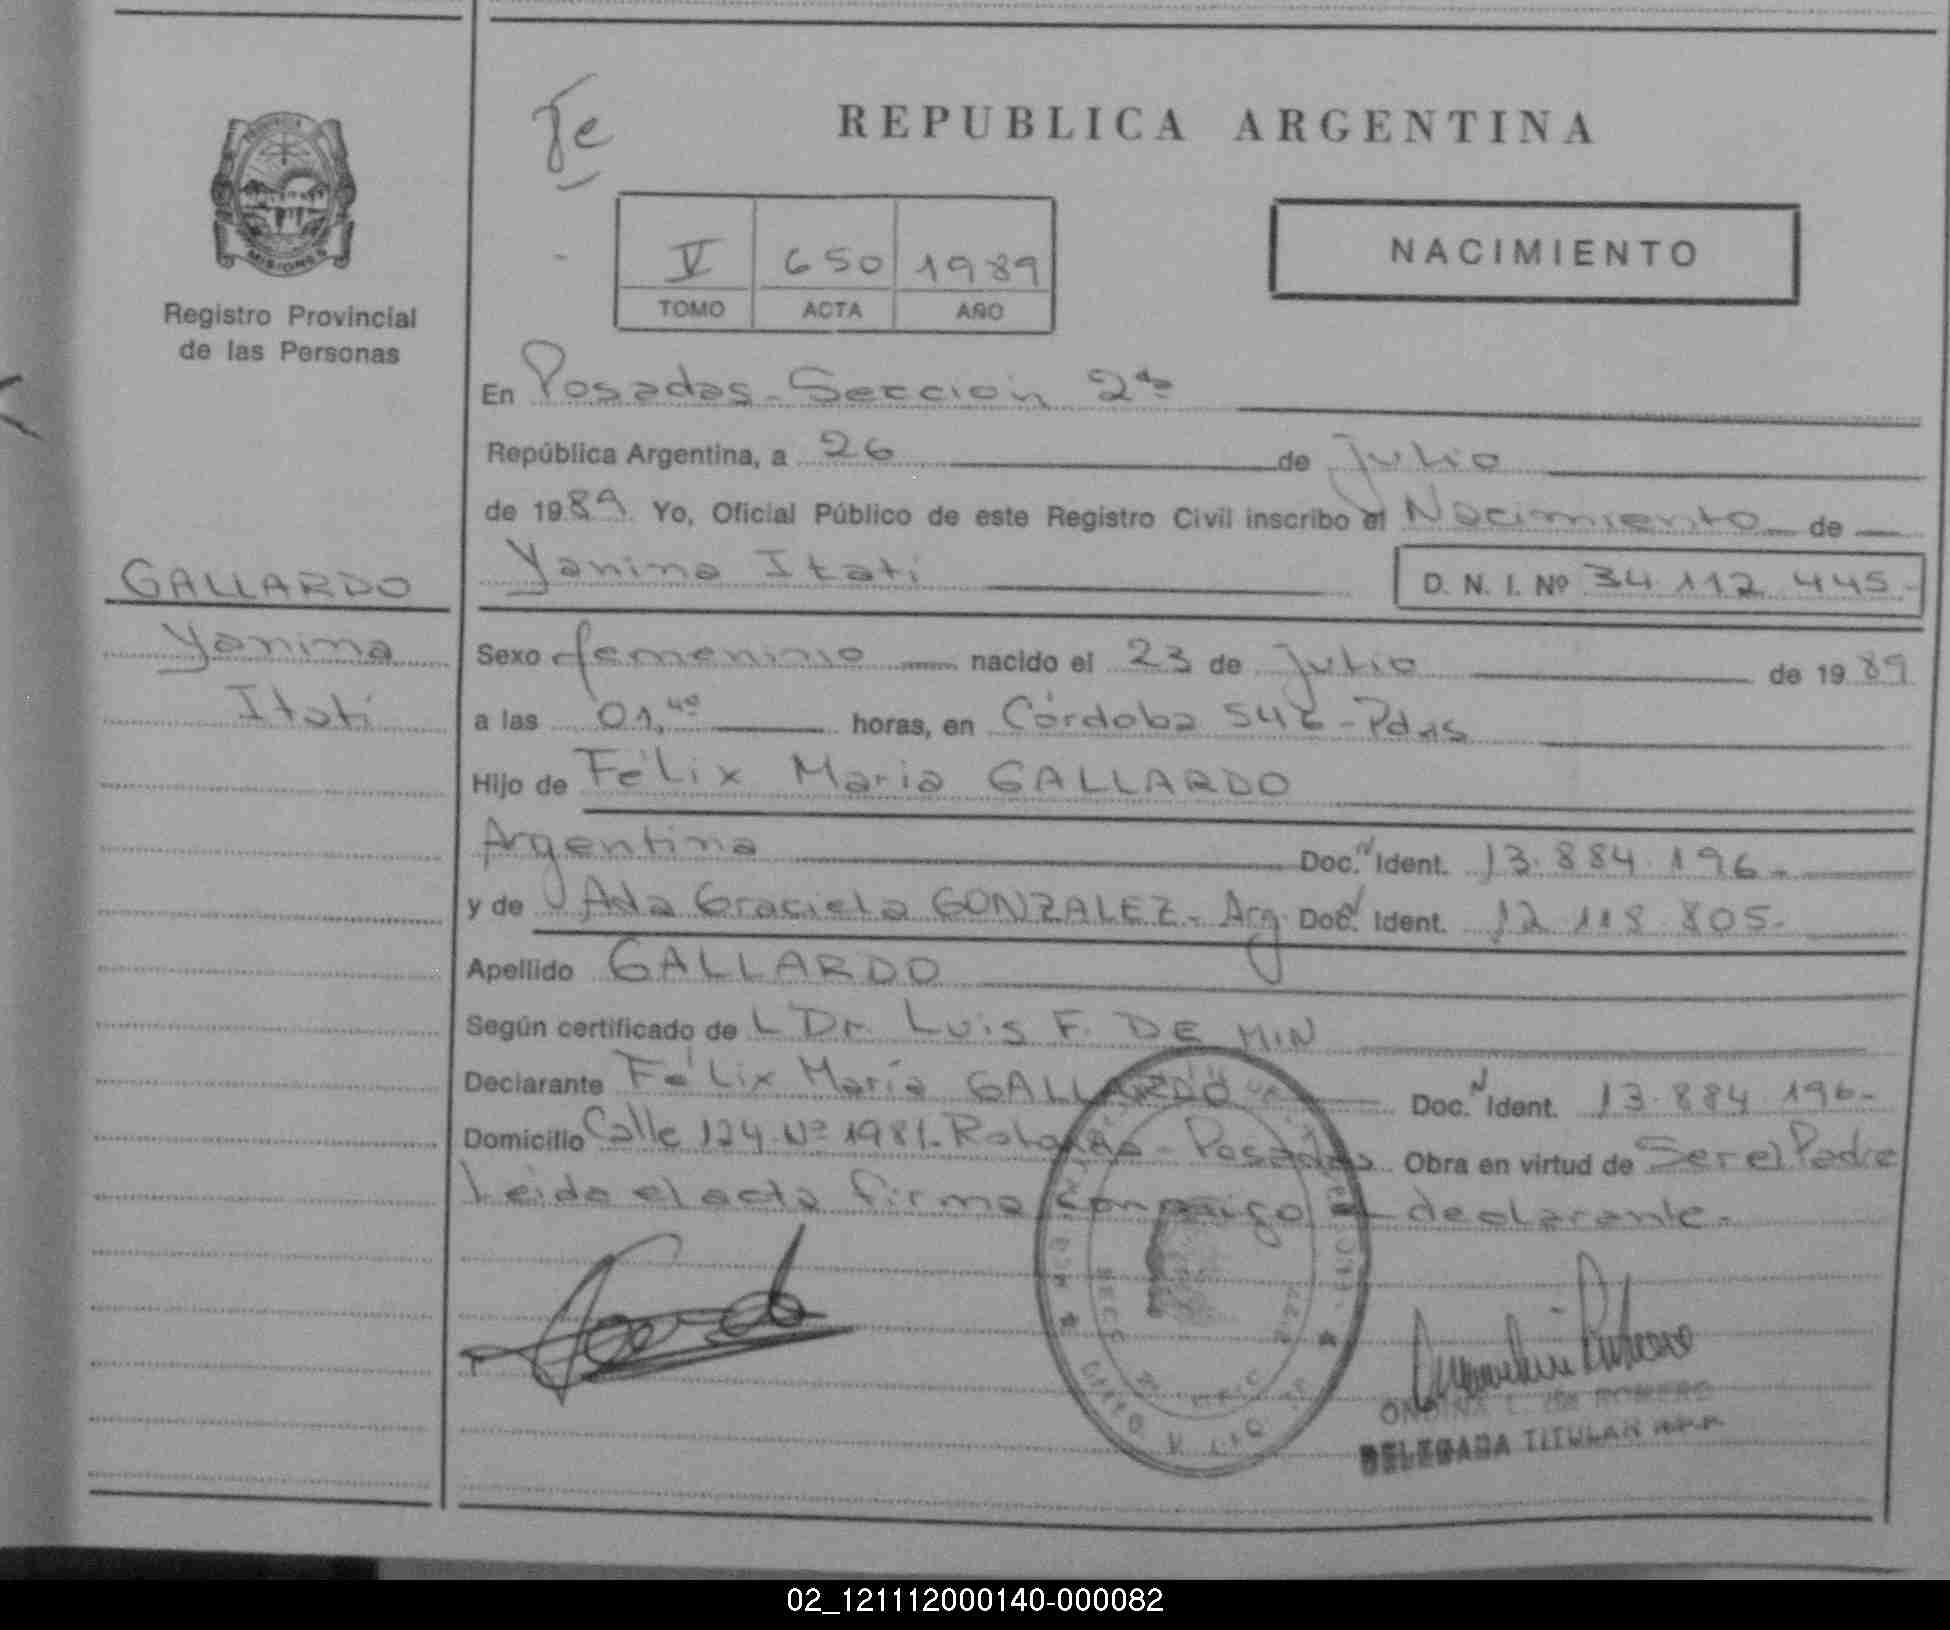 Je
REPUBLICA ARGENTINA
MISIONES
V 650 1989
TOMO ACTA AÑO
NACIMIENTO
Registro Provincial
de las Personas
En Posadas - Sección 2da
República Argentina, a 26 de julio
de 1989 Yo, Oficial Público de este Registro Civil inscribo el Nacimiento de
GALLARDO
Yanina Itatí
D. N. I. Nº 34.112.445-
Yanina
Itatí
Sexo femenino nacido el 23 de julio de 1989
a las 01,40 horas, en Córdoba 546 - Pdas
Hijo de Félix Maria GALLARDO
Argentina Doc. N Ident. 13.884.196-
y de Ada Graciela GONZALEZ - Arg. Doc. N Ident. 12.118.805-
Apellido GALLARDO
Según certificado de L Dr. Luis F. DE MIN
Declarante Félix María GALLARDO Doc. N Ident. 13.884.196-
Domicilio Calle 124 Nº 1981 - Posadas Obra en virtud de Ser el Padre
Leída el acta firma conmigo el declarante.
DELEGADA TITULAR
02_121112000140-000082